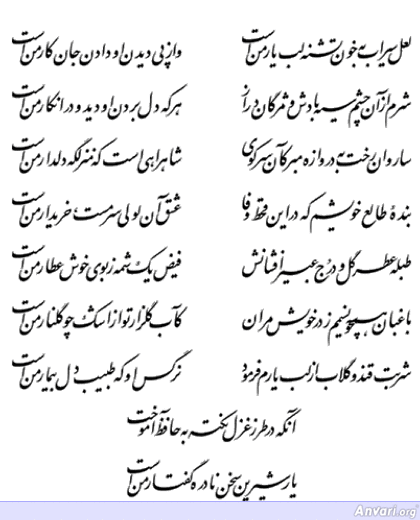 لعل سیراب به خون تشنه لب یار من است واز پی دیدن او دادن جان کار من است
شرم از آن چشم سیه بادش و مژگان دراز هر که دل بردن او دید و در انکار من است
ساروان رخت به دروازه مبر کآن سر کوی شاهراهی است که منزلگه دلدار من است
بندهٔ طالع خویشم که در این قحط وفا عشق آن لولی سرمست خریدار من است
طبلهٔ عطر گل و درج عبیر افشانش فیض یک شمه ز بوی خوش عطار من است
باغبان همچو نسیمم ز در خویش مران کآب گلزار تو از اشک چو گلنار من است
شربت قند و گلاب از لب یارم فرمود نرگس او که طبیب دل بیمار من است
آنکه در طرز غزل نکته به حافظ آموخت
یار شیرین سخن نادره گفتار من است
Anvari.org